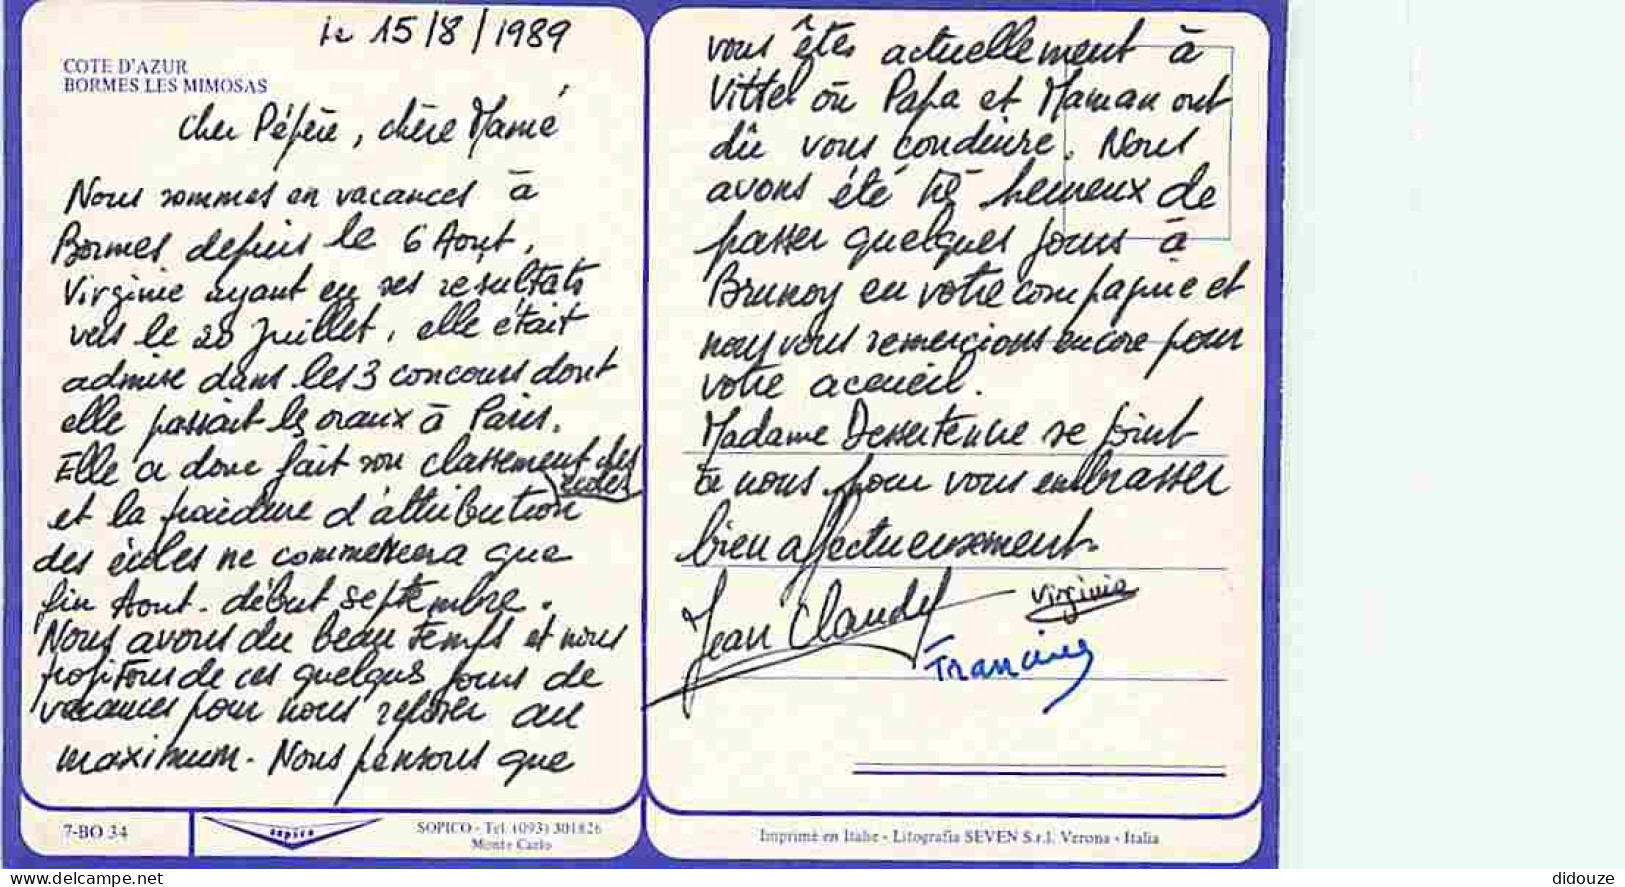 le 15/8/1989
COTE D'AZUR
BORMES LES MIMOSAS
cher Pépère, chère Mamé
Nous sommes en vacances à
Bormes depuis le 6 Aout,
Virginie ayant eu ses resultats
vers le 20 Juillet, elle était
admise dans les 3 concours dont
elle passait les oraux à Paris.
Elle a donc fait son classement des
écoles
et la procédure d'attribution
des écoles ne commencera que
fin Aout - début septembre.
Nous avons du beau temps et nous
profitons de ces quelques jours de
vacances pour nous reposer au
maximum. Nous pensons que
vous êtes actuellement à
Vittel où Papa et Maman ont
dû vous conduire. Nous
avons été très heureux de
passer quelques jours à
Brunoy en votre compagnie et
nous vous remercions encore pour
votre accueil.
Madame Dessertenne se joint
à nous pour vous embrasser
bien affectueusement.
Jean Claude
Virginie
Francine
7-BO 34
sopico
SOPICO - Tel. (093) 301826
Monte Carlo
Imprimé en Italie - Litografia SEVEN S.r.l. Verona - Italia
delcampe.net
didouze